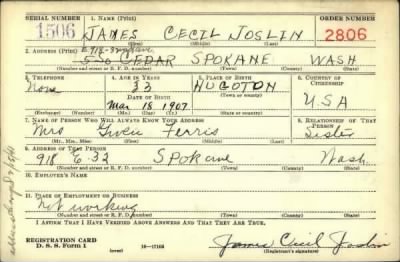 SERIAL NUMBER 1. NAME (Print) ORDER NUMBER
1506 JAMES CECIL JOSLIN 2806
(First) (Middle) (Last)
2. ADDRESS (Print) E 918-32nd Ave
550 CEDAR SPOKANE WASH
(Number and street or R. F. D. number) (Town) (County) (State)
3. TELEPHONE 4. AGE IN YEARS 5. PLACE OF BIRTH 6. COUNTRY OF CITIZENSHIP
None 33 HUGOTON
DATE OF BIRTH (Town or county)
Mar 18 1907 USA
(Exchange) (Number) (Mo.) (Day) (Yr.) (State or country)
7. NAME OF PERSON WHO WILL ALWAYS KNOW YOUR ADDRESS 8. RELATIONSHIP OF THAT PERSON
Mrs Ferris Sister
(Mr., Mrs., Miss) (First) (Middle) (Last)
9. ADDRESS OF THAT PERSON
918 E-32 Spokane Wash.
(Number and street or R. F. D. number) (Town) (County) (State)
10. EMPLOYER'S NAME
11. PLACE OF EMPLOYMENT OR BUSINESS
Not working
(Number and street or R. F. D. number) (Town) (County) (State)
I AFFIRM THAT I HAVE VERIFIED ABOVE ANSWERS AND THAT THEY ARE TRUE.
REGISTRATION CARD
D. S. S. Form 1 (over) 16-17105 James Cecil Joslin
(Registrant's signature)